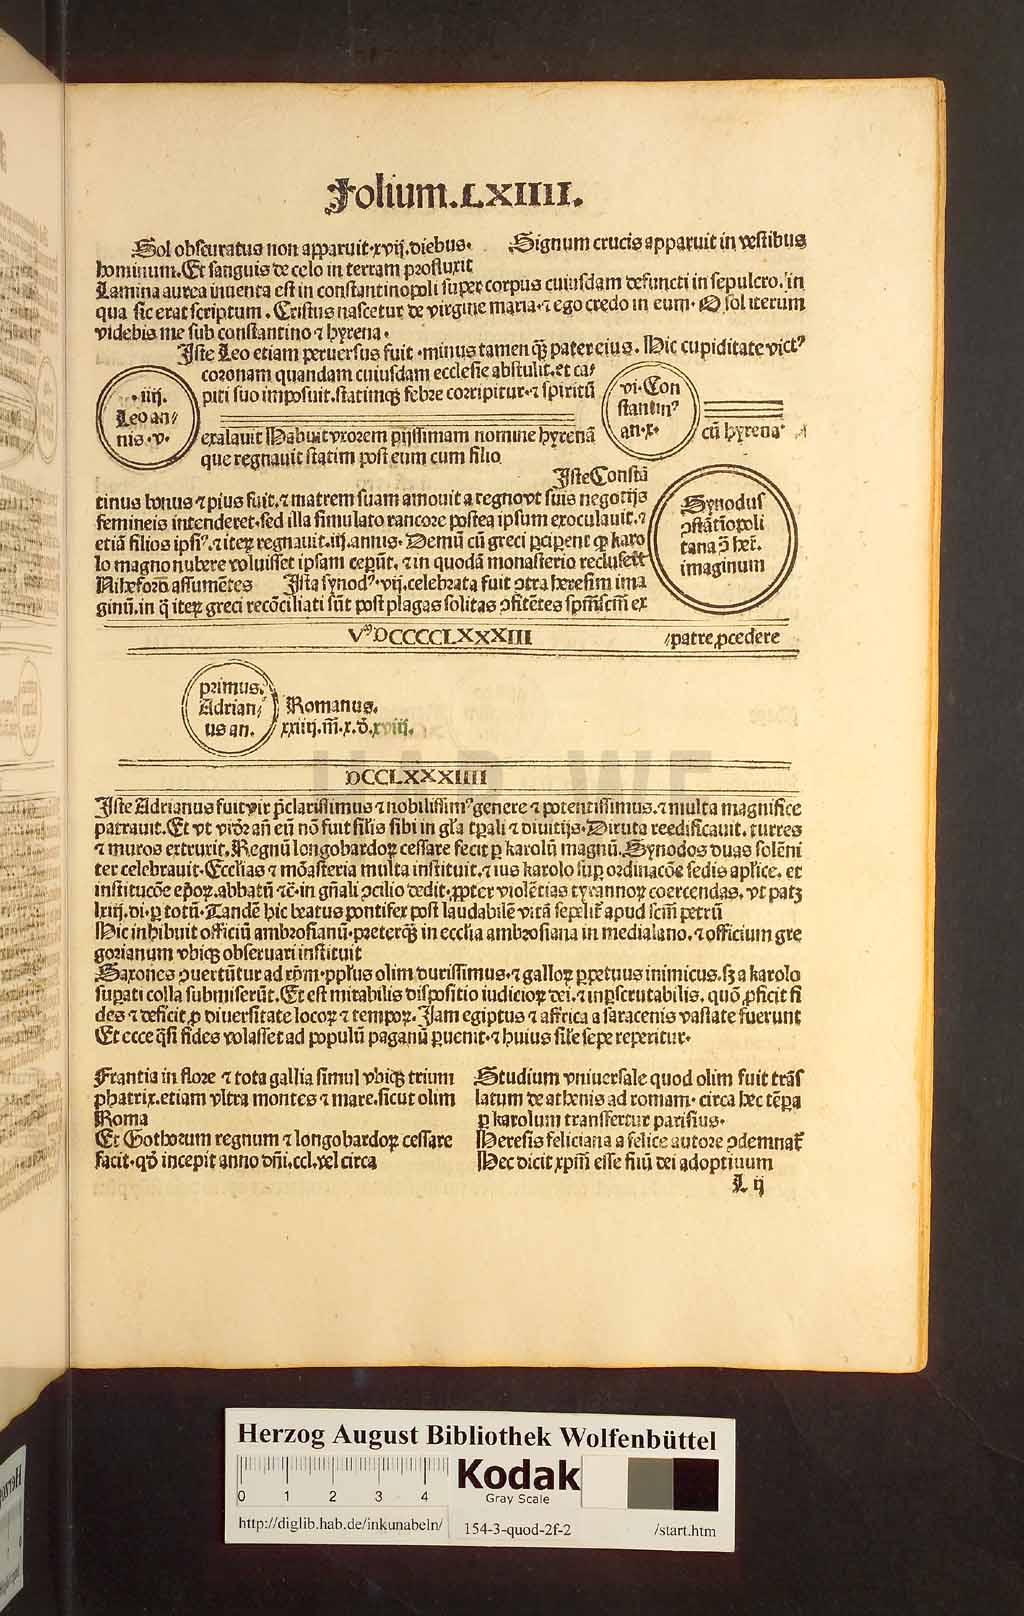 Folium.LXIIII.
Sol obscuratus non apparuit.xvij.diebus. Signum crucis apparuit in vestibus
hominum.Et sanguis de celo in terram profluxit
Lamina aurea inuenta est in constantinopoli super corpus cuiusdam defuncti in sepulcro.in
qua sic erat scriptum. Cristus nascetur de virgine maria.⁊ ego credo in eum. O sol iterum
videbis me sub constantino ⁊ hyrena.
Iste Leo etiam peruersus fuit .minus tamen qȝ pater eius. Hic cupiditate victꝰ
coronam quandam cuiusdam ecclesie abstulit.et ca/
piti suo imposuit.statimqȝ febre corripitur.⁊ spiritū
.iiij.
Leo an/
nis.v.
vi.Con
stantinꝰ
an.x.
cū hyrena
exalauit Habuit vxorem pijssimam nomine hyrenā
que regnauit statim post eum cum filio
Iste Constā
tinus bonus ⁊ pius fuit.⁊ matrem suam amouit a regno vt suis negotijs
femineis intenderet.sed illa simulato rancore postea ipsum exoculauit.⁊
etiā filios ipsiꝰ.⁊ iteꝝ regnauit.iij.annis. Demū cū greci ꝑciperent ꝙ karo
lo magno nubere voluisset ipsam ceperūt.⁊ in quodā monasterio recluserūt
Nikeforo assumētes Ista synodꝰ.vij.celebrata fuit ↄtra heresim ima
ginū.in q̄ iteꝝ greci recōciliati sūt post plagas solitas ↄfitētes spm̄scm̄ ex
Synodus
ↄstātiopoli
tana ↄ̄ her.
imaginum
VᵐDCCCCCLXXXIII /patre ꝓcedere
primus.
Adrian/
us an.
Romanus.
xxiiij.m̄.x.d̄.xviij.
DCCLXXXIIII
Iste Adrianus fuit vir p̄clarissimus ⁊ nobilissimꝰ genere ⁊ potentissimus.⁊ multa magnifice
patrauit.Et vt vidr̄ an̄ eū nō fuit silis sibi in gl̄a tp̄ali ⁊ diuitijs. Diruta reedificauit. turres
⁊ muros extruxit. Regnū longobardoꝝ cessare fecit ꝑ karolū magnū. Synodos duas solēni
ter celebrauit. Ecclias ⁊ mōasteria multa instituit.⁊ ius karolo suꝑ ordinacōe sedis apl̄ice. et
institucōe ep̄oꝝ.abbatū ⁊c̄.in gn̄ali ↄcilio dedit.ꝓpter violētias tyrannoꝝ coercendas. vt patȝ
lxiij.di.ꝑ totū. Tandē hic beatus pontifex post laudabilē vitā sepelit̄ apud scm̄ petrū
Hic inhibuit officiū ambrosianū.preterqȝ in ecclia ambrosiana in mediolano.⁊ officium gre
gorianum vbiqȝ obseruari instituit
Saxones ↄuertūtur ad xp̄m.ppl̄us olim durissimus.⁊ galloꝝ ꝑpetuus inimicus.sȝ a karolo
suꝑati colla submiserūt. Et est mirabilis dispositio iudicioꝝ dei.⁊ inꝑscrutabilis. quō ꝓficit fi
des ⁊ deficit ꝓ diuersitate locoꝝ ⁊ tempoꝝ. Nam egiptus ⁊ affrica a saracenis vastate fuerunt
Et ecce q̄si fides volasset ad populū paganū ꝑuenit.⁊ huius sil̄e sepe reperitur.
Frantia in flore ⁊ tota gallia simul vbiqȝ trium
phatrix.etiam vltra montes ⁊ mare.sicut olim
Roma
Et Gothorum regnum ⁊ longobardoꝝ cessare
facit.qd̄ incepit anno dn̄i.ccl.vel circa
Studium vniuersale quod olim fuit trās
latum de athenis ad romam. circa hec tēpa
ꝑ karolum transfertur parisius.
Heresis feliciana a felice autore ↄdemnat̄
Hec dicit xp̄m esse fiiū dei adoptiuum
L ij
HAB WF
Herzog August Bibliothek Wolfenbüttel
0 1 2 3 4
Kodak
Gray Scale
http://diglib.hab.de/inkunabeln/ 154-3-quod-2f-2 /start.htm